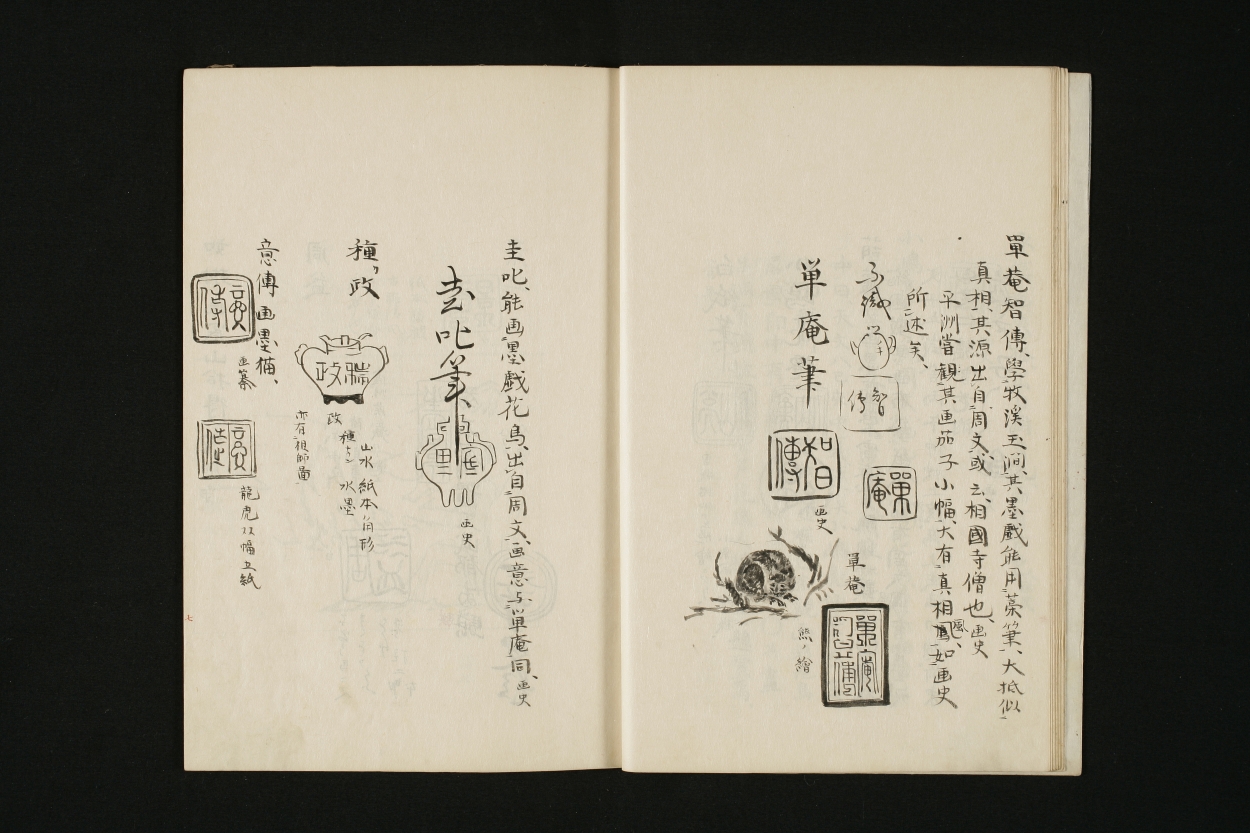 單菴智傳、學牧溪玉澗、其墨戲能用藁筆、大抵似
真相、其源出自周文、或云、相國寺僧也、画史
平洲嘗觀其画茄子小幅、大有真相風、如画史
所述矣、
智傳
単庵筆
智傳
画史
單庵
單菴
熊ノ繪
圭叱、能画墨戯花鳥、出自周文、画意与単庵同、画史
圭叱筆
画史
種政
政
種
山水紙本角形
水墨
亦有祖師圖
意傳画墨猫、
画纂
龍虎双幅立紙
七